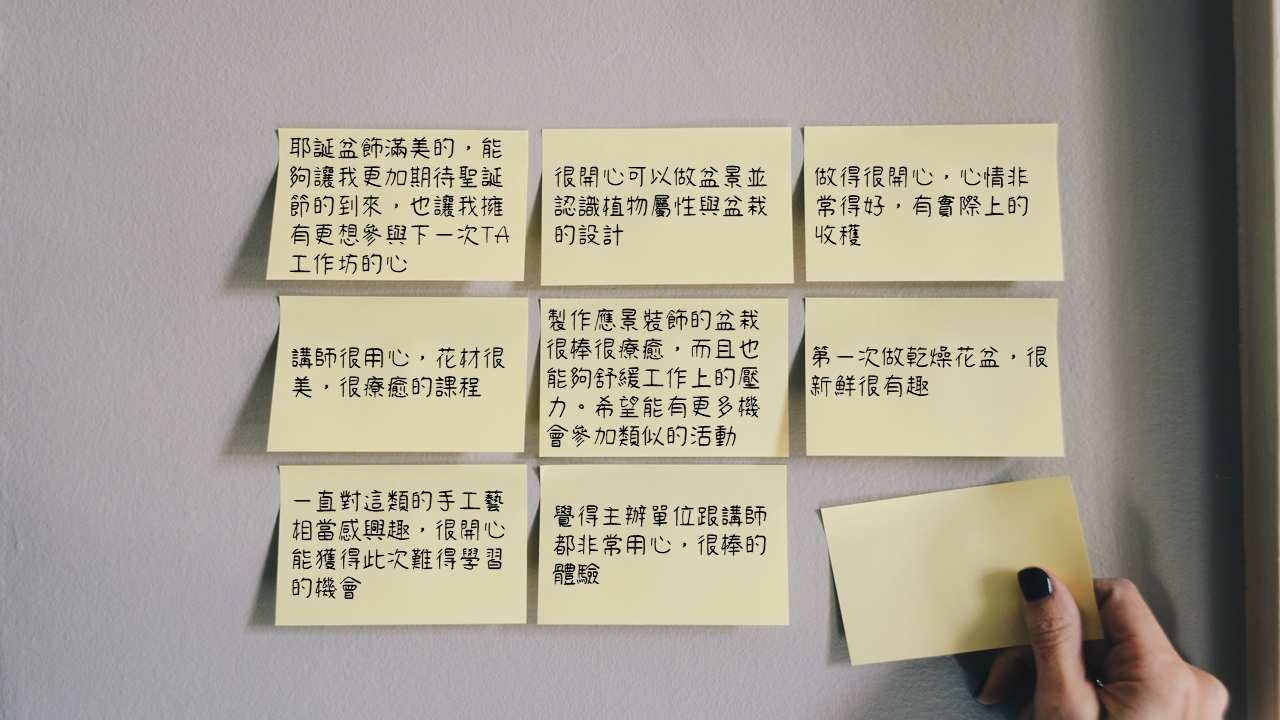 耶誕盆飾滿美的，能
夠讓我更加期待聖誕
節的到來，也讓我擁
有更想參與下一次TA
工作坊的心
很開心可以做盆景並
認識植物屬性與盆栽
的設計
做得很開心，心情非
常得好，有實際上的
收穫
講師很用心，花材很
美，很療癒的課程
製作應景裝飾的盆栽
很棒很療癒，而且也
能夠舒緩工作上的壓
力。希望能有更多機
會參加類似的活動
第一次做乾燥花盆，很
新鮮很有趣
一直對這類的手工藝
相當感興趣，很開心
能獲得此次難得學習
的機會
覺得主辦單位跟講師
都非常用心，很棒的
體驗